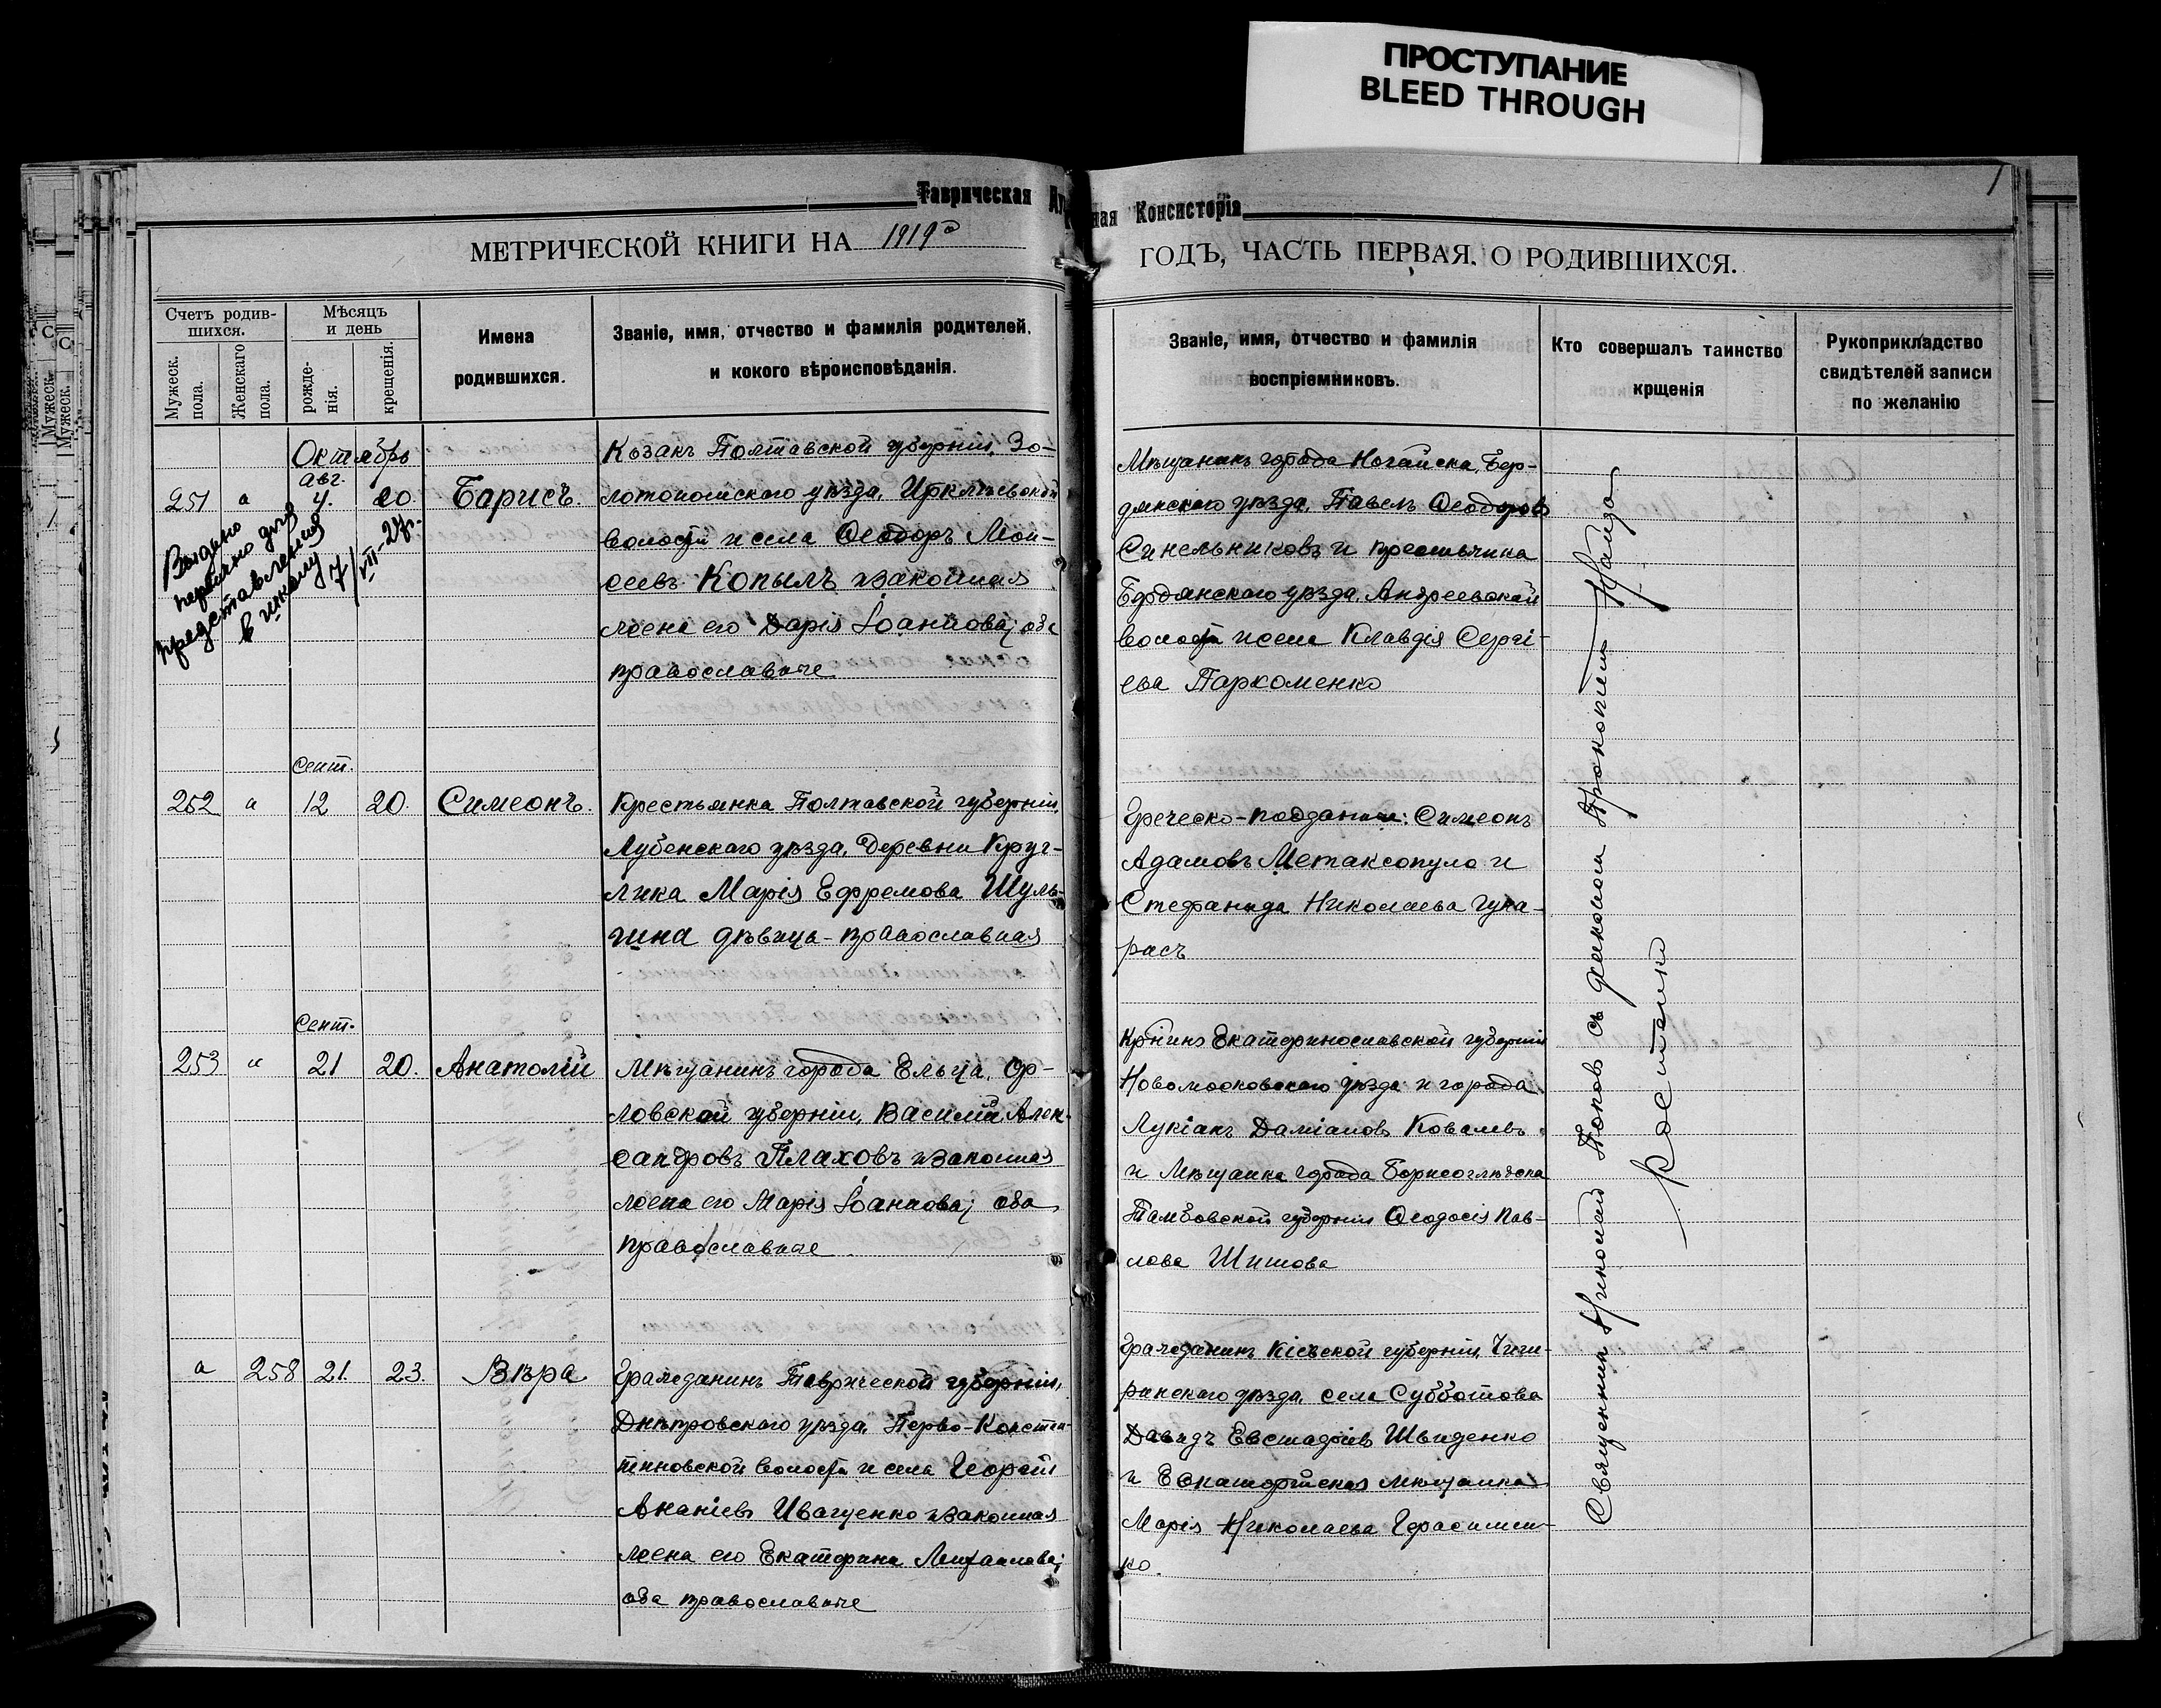 ПРОСТУПАНИЕ
BLEED THROUGH
Таврическая
ная Консисторія
1
МЕТРИЧЕСКОЙ КНИГИ НА 1919
ГОДЪ, ЧАСТЬ ПЕРВАЯ. О РОДИВШИХСЯ.
Счетъ родив-
шихся.
Мужеск.
пола.
Женскаго
пола.
Мѣсяцъ
и день
рожде-
нія.
крещенія.
Имена
родившихся.
Званіе, имя, отчество и фамилія родителей,
и кокого вѣроисповѣданія.
Званіе, имя, отчество и фамилія
воспріемниковъ.
Кто совершалъ таинство
крщенія
Рукоприкладство
свидѣтелей записи
по желанію
Октябрь
авг.
251 а 4. 20. Барисъ.
Выдано
для
представления
в
7/VIII-27г.
Козакъ Полтавской губерніи, Зо-
лотоношскаго уѣзда, Ирклѣевской
волости и села Ѳеодоръ Мои-
сеевъ Копылъ и законная
жена его Дарія Іоаннова; оба
православные
Мѣщанинъ города Ногайска, Бер-
дянскаго уѣзда, Павелъ Ѳеодоровъ
Синельниковъ и крестьянка
Бердянскаго уѣзда, Андреевской
волости и села Клавдія Сергі-
ева Пархоменко
сент.
252 а 12 20. Симеонъ.
Крестьянка Полтавской губерніи,
Лубенскаго уѣзда, деревни Круг-
лика Марія Ефремова Шуль-
гина дѣвица - православная
Греческо-подданные: Симеонъ
Адамовъ Метаксопуло и
Стефанида Николаева Гуна-
расъ
сент.
253 а 21 20. Анатолій
Мѣщанинъ города Ельца, Ор-
ловской губерніи, Василій Алек-
сандровъ Плаховъ и законная
жена его Марія Іоаннова; оба
православные
Кр-нинъ Екатеринославской губерніи
Новомосковскаго уѣзда и города
Лукіанъ Даміановъ Ковалевъ
и мѣщанка города Борисоглѣбска
Тамбовской губерніи Ѳеодосія Пав-
лова Шишова
а 258 21. 23. Вѣра
Гражданинъ Таврической губерніи,
Днѣпровскаго уѣзда, Перво-Констан-
тиновской волости и села Георгій
Ананіевъ Иващенко и законная
жена его Екатерина Михаилова;
оба православные
Гражданинъ Кіевской губерніи, Чиги-
ринскаго уѣзда, села Субботова
Давидъ Евстафіевъ Швиденко
и Евпаторійская мѣщанка
Марія Николаева Герасимен-
ко.
Священникъ Николай Поповъ съ діакономъ Прокопіемъ Найда
Костенко